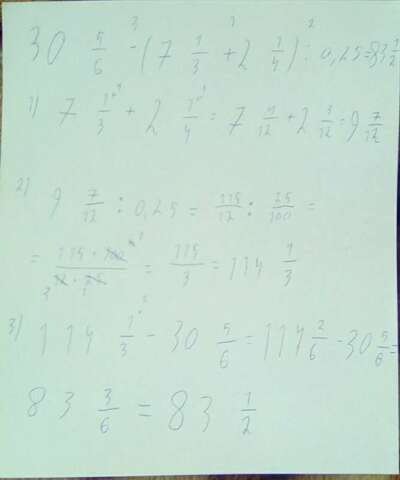 3 1 2
30 5/6 - (7 1/3 + 2 1/4) : 0,25 = 83 1/2
1) 7 1/3 + 2 1/4 = 7 4/12 + 2 3/12 = 9 7/12
2) 9 7/12 : 0,25 = 115/12 : 25/100 =
= 115 · 100 / 12 · 25 = 115/3 = 114 1/3
3) 114 1/3 - 30 5/6 = 114 2/6 - 30 5/6 =
83 3/6 = 83 1/2